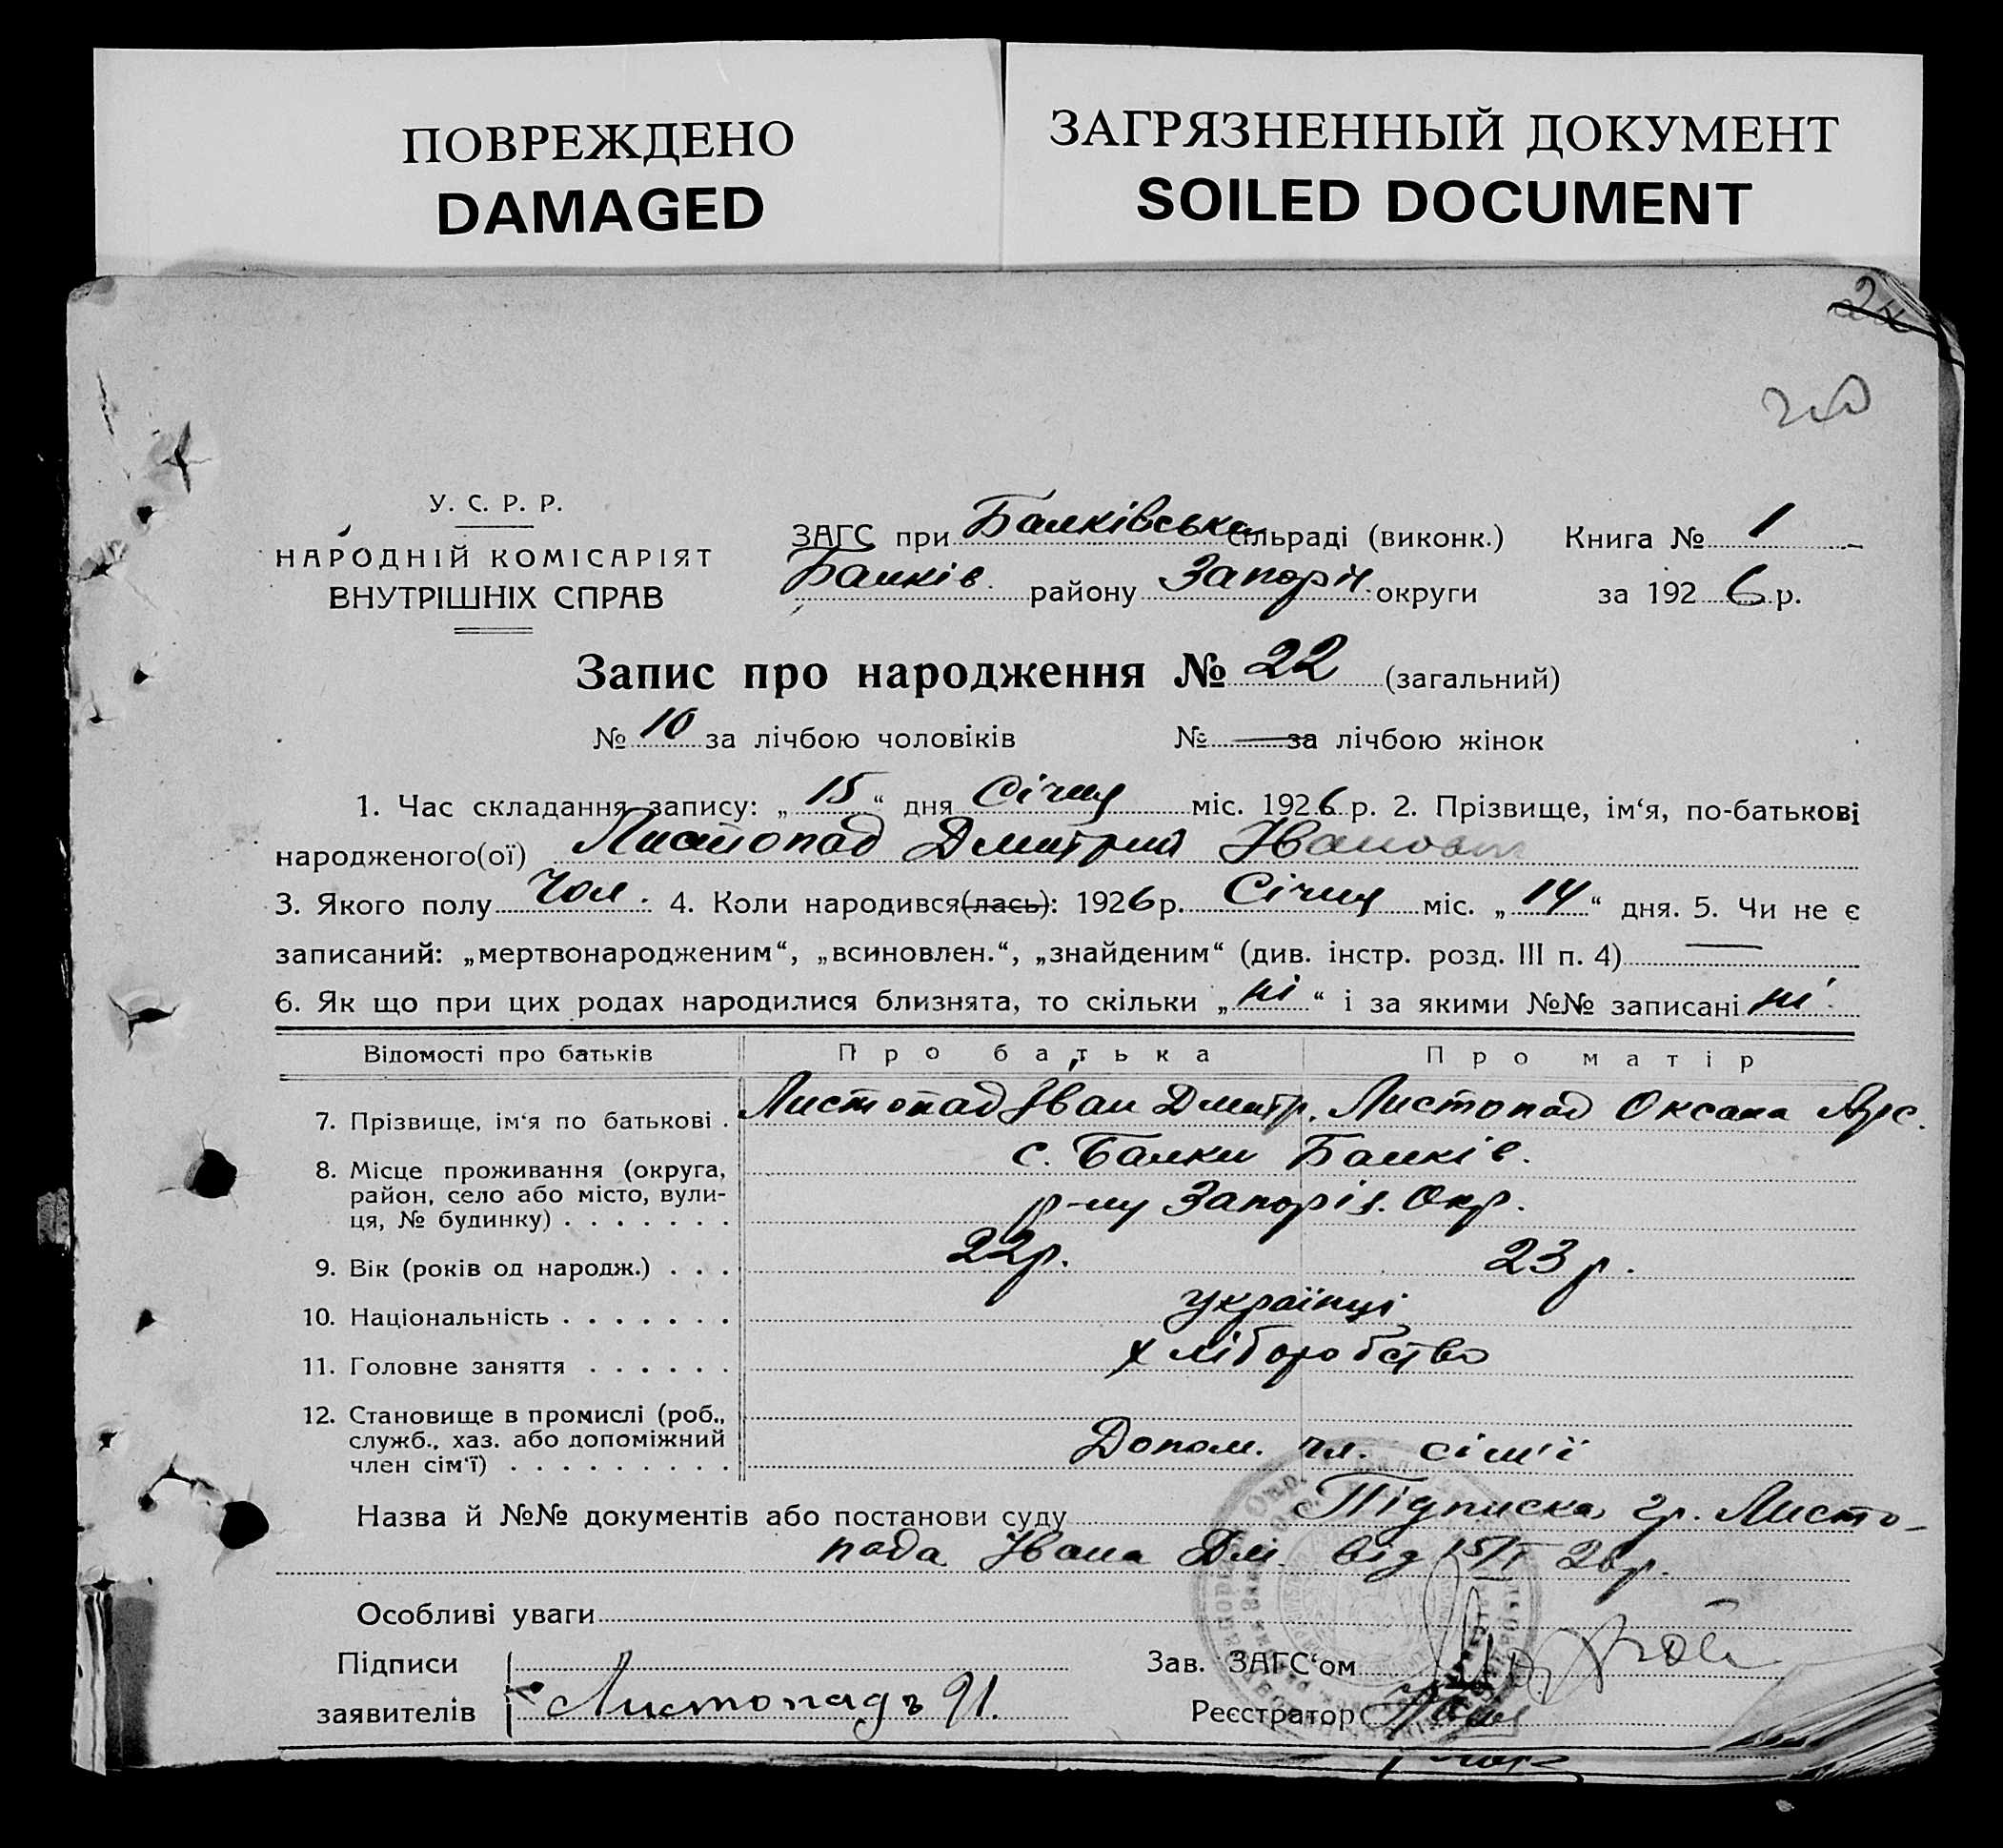 ПОВРЕЖДЕНО
DAMAGED
ЗАГРЯЗНЕННЫЙ ДОКУМЕНТ
SOILED DOCUMENT
У. С. Р. Р.
НАРОДНІЙ КОМІСАРІЯТ
ВНУТРІШНІХ СПРАВ
ЗАГС при Балківська сільраді (виконк.) Книга № 1
Балків. району Запоріз. округи за 1926 р.
Запис про народження № 22 (загальний)
№ 10 за лічбою чоловіків № — за лічбою жінок
1. Час складання запису: „15“ дня Січня міс. 1926 р. 2. Прізвище, ім‘я, по-батькові
народженого(ої) Листопад Дмитрий Іванович
3. Якого полу чол. 4. Коли народився(лась): 1926 р. Січня міс. „14“ дня. 5. Чи не є
записаний: „мертвонародженим“, „всиновлен.“, „знайденим“ (див. інстр. розд. III п. 4) —
6. Як що при цих родах народилися близнята, то скільки „ні“ і за якими №№ записані ні.
Відомості про батьків Про батька Про матір
7. Прізвище, ім‘я по батькові . Листопад Іван Дмитр. Листопад Оксана
8. Місце проживання (округа, с. Балки Балків.
район, село або місто, вули-
ця, № будинку) . . . . . . . р-ну Запоріз. Окр.
9. Вік (років од народж.) . . . 22 р. 23 р.
10. Національність . . . . . . . українці
11. Головне заняття . . . . . . хліборобство
12. Становище в промислі (роб.,
служб., хаз. або допоміжний
член сім‘ї) . . . . . . . . . Допом. чл. сім'ї
Назва й №№ документів або постанови суду Підписка гр. Листо-
пада Івана Дм. від 15/I 26 р.
Особливі уваги
Підписи Зав. ЗАГС‘ом
заявителів Листопадъ И. Реєстратор